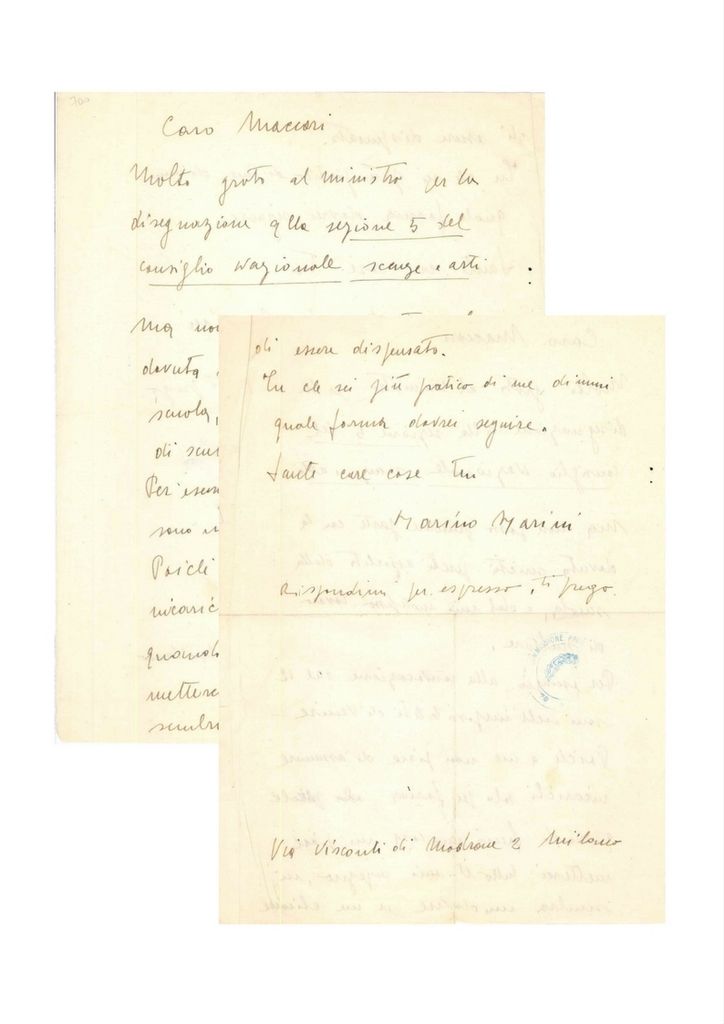 700
Caro Maccari
Molto grato al ministro per la
disegnazione alla sezione 5 del
consiglio Nazionale scienze e arti
Ma non
dovuta
scuola,
di scu
Per esem
sono in
Poichè
incaric
quando
mettere
sembr
di essere dispensato.
Tu che sei più pratico di me, dimmi
quale forma dovrei seguire.
Tante care cose tuo
Marino Marini
Rispondimi per espresso, ti prego.
Via Visconti di Modrone 2 Milano